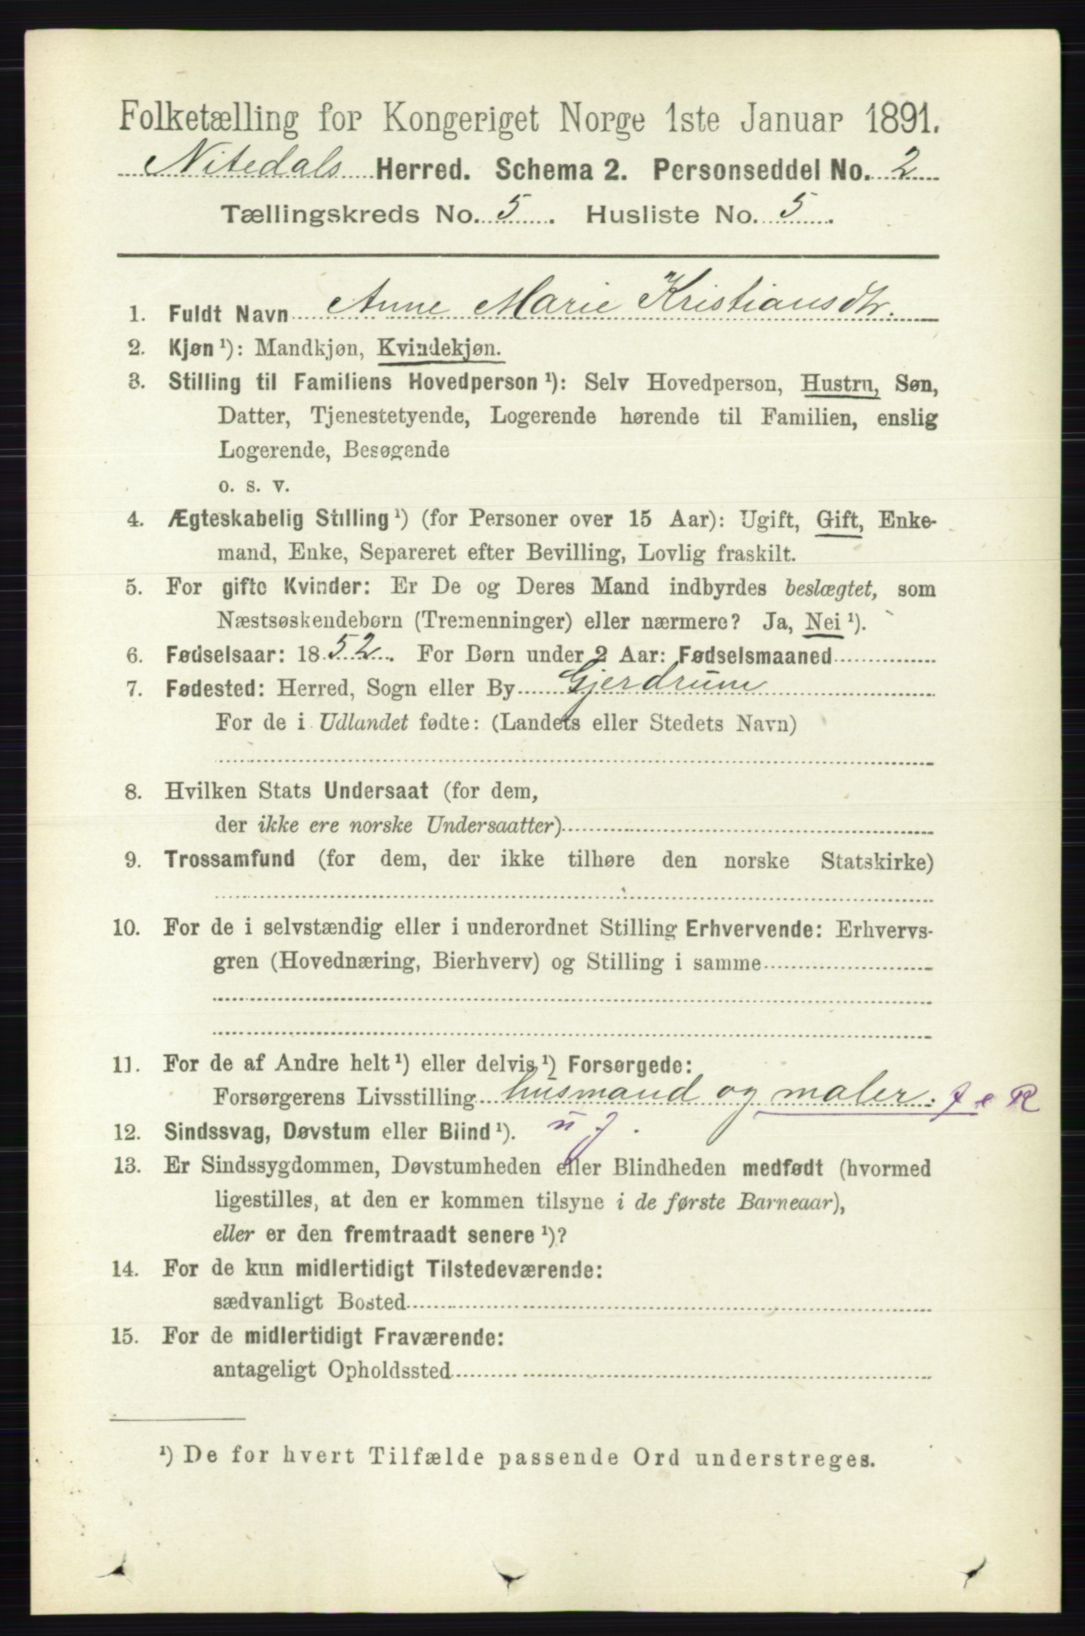 Folketælling for Kongeriget Norge 1ste Januar 1891.
Nitedals Herred. Schema 2. Personseddel No. 2
Tællingskreds No. 5. Husliste No. 5.
1. Fuldt Navn Anne Marie Kristiansdtr.
2. Kjøn ¹): Mandkjøn, Kvindekjøn.
3. Stilling til Familiens Hovedperson ¹): Selv Hovedperson, Hustru, Søn,
Datter, Tjenestetyende, Logerende hørende til Familien, enslig
Logerende, Besøgende
o. s. v.
4. Ægteskabelig Stilling ¹) (for Personer over 15 Aar): Ugift, Gift, Enke-
mand, Enke, Separeret efter Bevilling, Lovlig fraskilt.
5. For gifte Kvinder: Er De og Deres Mand indbyrdes beslægtet, som
Næstsøskendebørn (Tremenninger) eller nærmere? Ja, Nei ¹).
6. Fødselsaar: 1852. For Børn under 2 Aar: Fødselsmaaned
7. Fødested: Herred, Sogn eller By Gjerdrum
For de i Udlandet fødte: (Landets eller Stedets Navn)
8. Hvilken Stats Undersaat (for dem,
der ikke ere norske Undersaatter)
9. Trossamfund (for dem, der ikke tilhøre den norske Statskirke)
10. For de i selvstændig eller i underordnet Stilling Erhvervende: Erhvervs-
gren (Hovednæring, Bierhverv) og Stilling i samme
11. For de af Andre helt ¹) eller delvis ¹) Forsørgede:
Forsørgerens Livsstilling husmand og maler.
12. Sindssvag, Døvstum eller Blind ¹).
13. Er Sindssygdommen, Døvstumheden eller Blindheden medfødt (hvormed
ligestilles, at den er kommen tilsyne i de første Barneaar),
eller er den fremtraadt senere ¹)?
14. For de kun midlertidigt Tilstedeværende:
sædvanligt Bosted
15. For de midlertidigt Fraværende:
antageligt Opholdssted
¹) De for hvert Tilfælde passende Ord understreges.